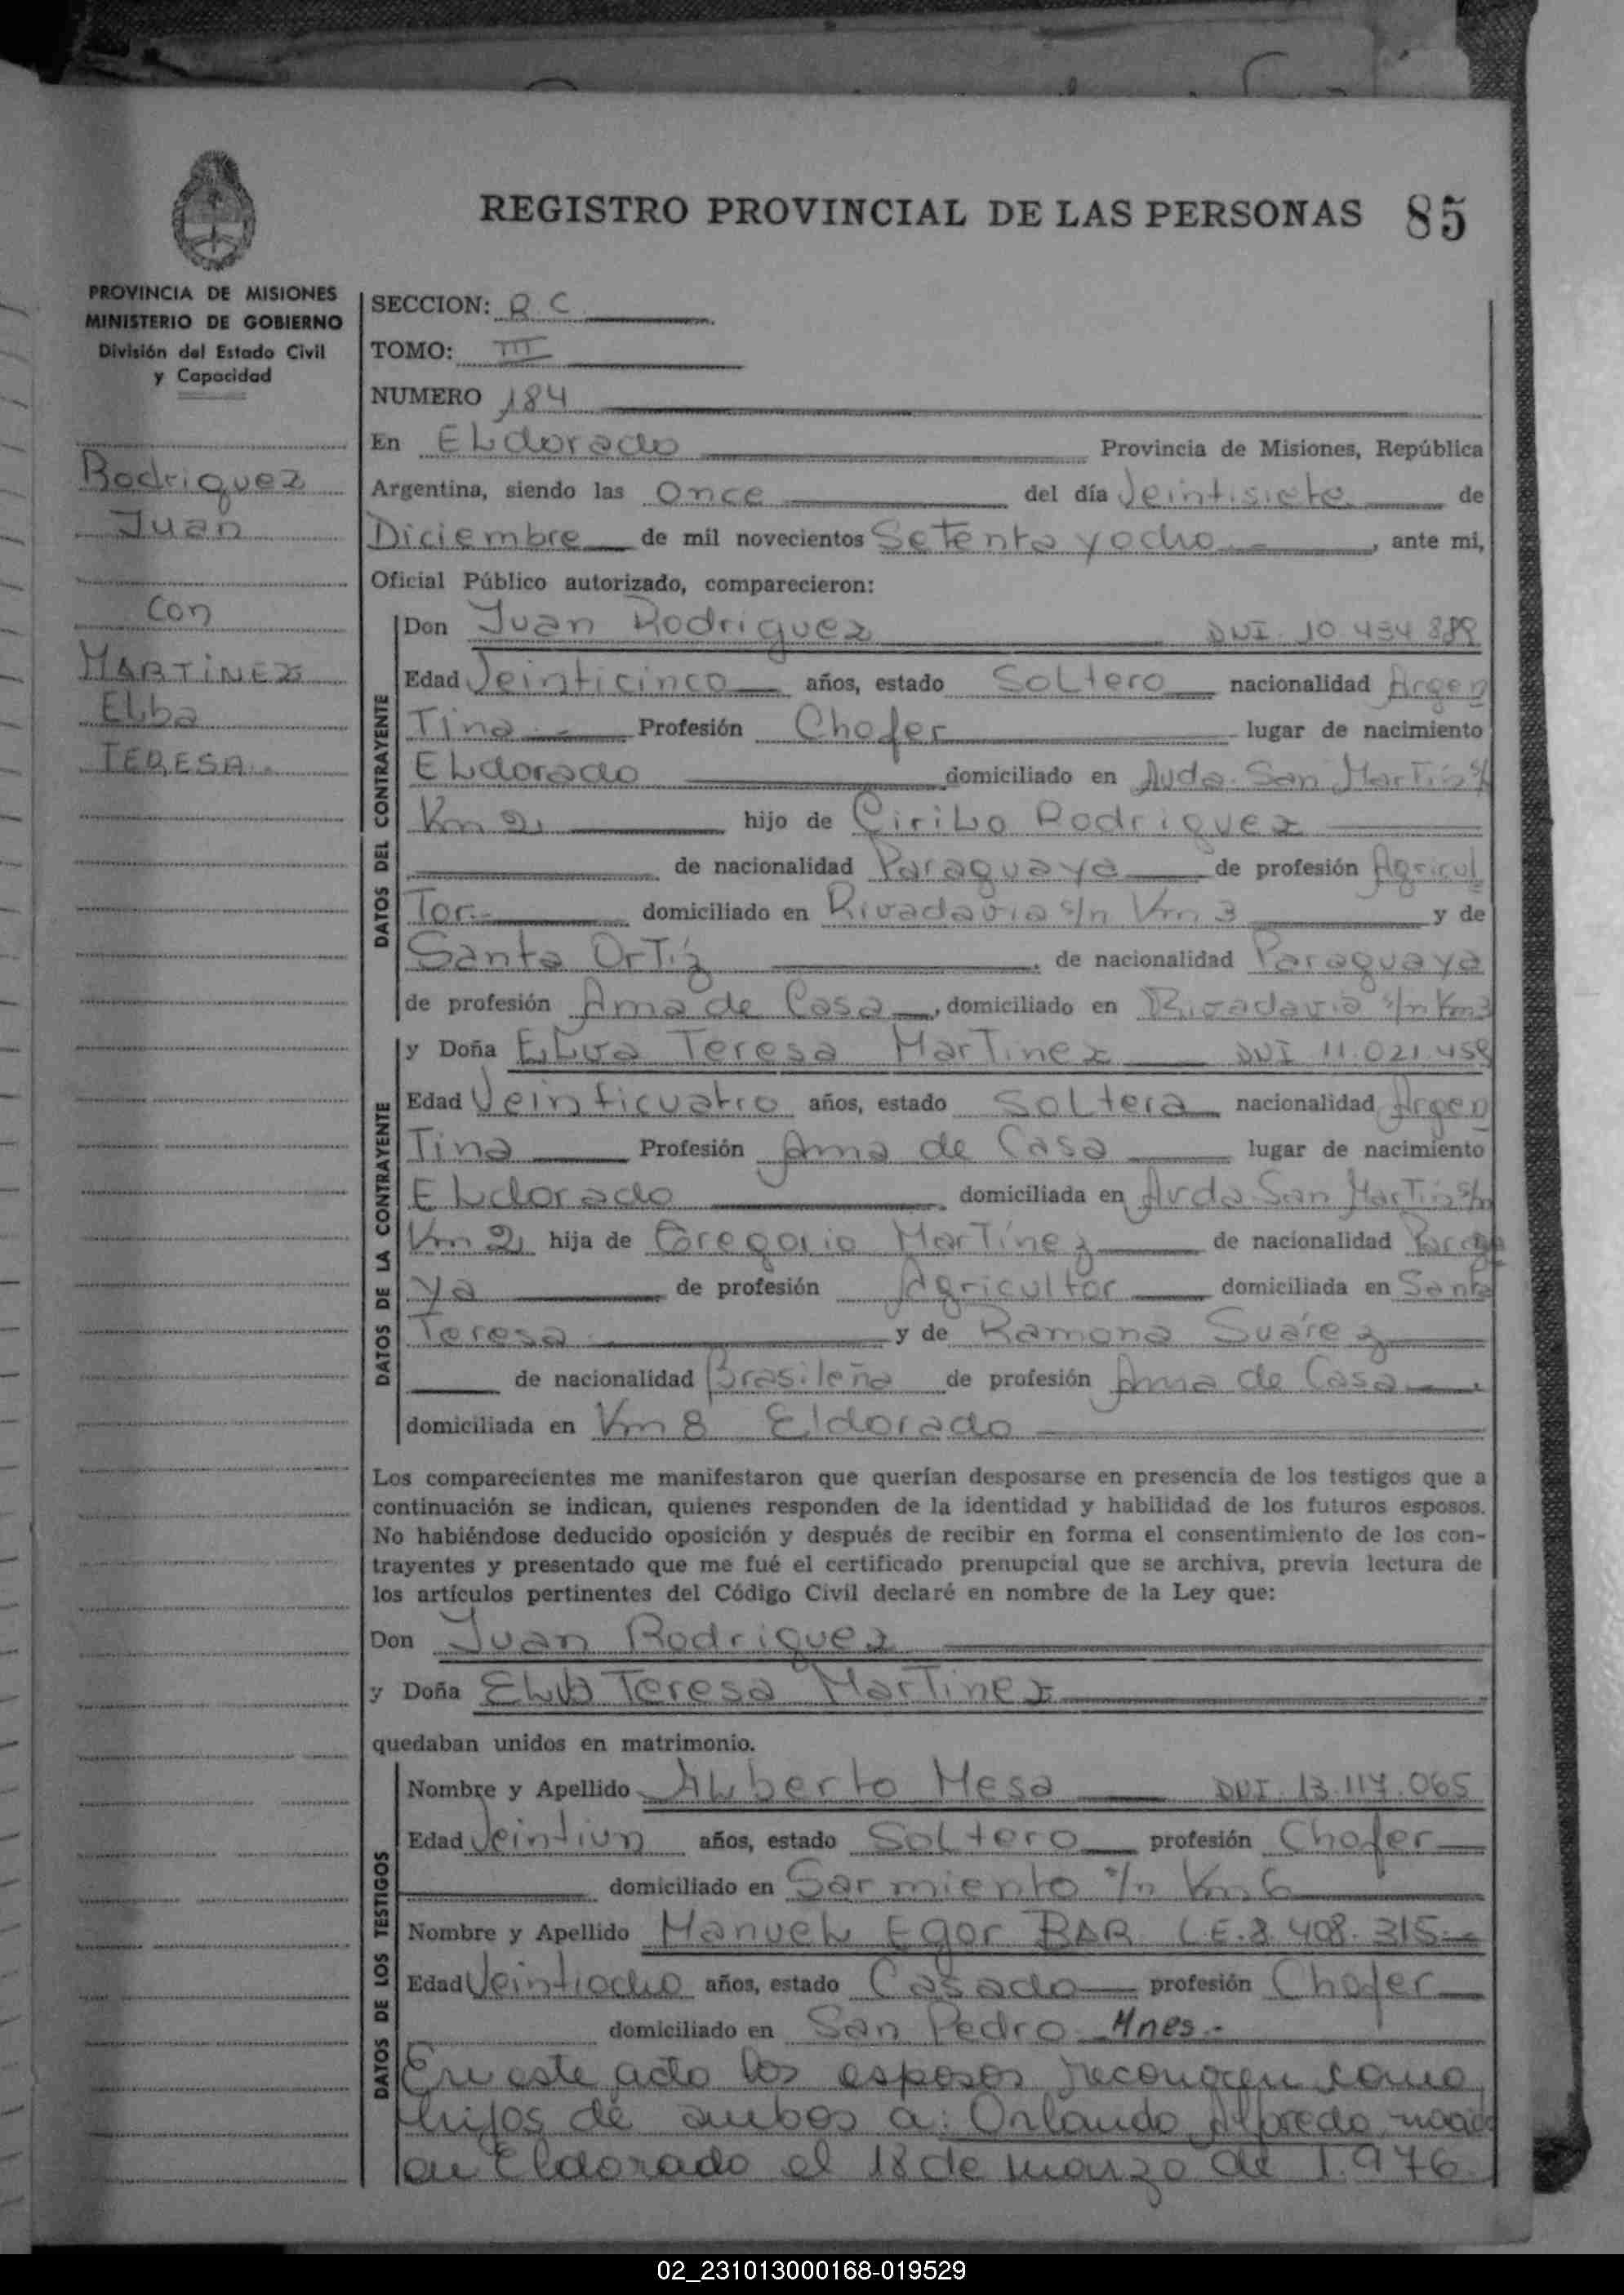 REGISTRO PROVINCIAL DE LAS PERSONAS 85
PROVINCIA DE MISIONES
MINISTERIO DE GOBIERNO
División del Estado Civil
y Capacidad
Rodriguez
Juan
Con
MARTINEZ
Elba
TERESA.
SECCION: R.C
TOMO: III
NUMERO 184
En Eldorado Provincia de Misiones, República
Argentina, siendo las Once del día Veintisiete de
Diciembre de mil novecientos Setenta y ocho, ante mi,
Oficial Público autorizado, comparecieron:
DATOS DEL CONTRAYENTE
Don Juan Rodriguez DNI. 10.434.889
Edad Veinticinco años, estado Soltero nacionalidad Argen
Tina Profesión Chofer lugar de nacimiento
Eldorado domiciliado en Avda. San Martin s/n
Km 2 hijo de Cirilo Rodriguez
de nacionalidad Paraguaya de profesión Agricul
Tor. domiciliado en Rivadavia s/n Km 3 y de
Santa Ortíz, de nacionalidad Paraguaya
de profesión Ama de Casa, domiciliado en Rivadavia s/n Km3
DATOS DE LA CONTRAYENTE
y Doña Elva Teresa Martinez DNI 11.021.458
Edad Veinticuatro años, estado Soltera nacionalidad Argen
Tina Profesión Ama de Casa lugar de nacimiento
Eldorado, domiciliada en Avda San Martin s/n
Km 2 hija de Gregorio Martínez de nacionalidad Paragua
ya de profesión Agricultor domiciliada en Santa
Teresa y de Ramona Suárez
de nacionalidad Brasileña de profesión Ama de Casa,
domiciliada en Km 8 Eldorado
Los comparecientes me manifestaron que querían desposarse en presencia de los testigos que a
continuación se indican, quienes responden de la identidad y habilidad de los futuros esposos.
No habiéndose deducido oposición y después de recibir en forma el consentimiento de los con-
trayentes y presentado que me fué el certificado prenupcial que se archiva, previa lectura de
los artículos pertinentes del Código Civil declaré en nombre de la Ley que:
Don Juan Rodriguez
y Doña Teresa Martinez
quedaban unidos en matrimonio.
DATOS DE LOS TESTIGOS
Nombre y Apellido Alberto Mesa DNI. 13.117.065
Edad Veintiun años, estado Soltero profesión Chofer
domiciliado en Sarmiento s/n Km 6
Nombre y Apellido Manuel Egor BAR L.E. 8.408.315
Edad Veintiocho años, estado Casado profesión Chofer
domiciliado en San Pedro Mnes.-
En este acto los esposos reconocen como
hijos de ambos a: Orlando Alfredo, nacido
en Eldorado el 18 de marzo de 1.976
02_231013000168-019529